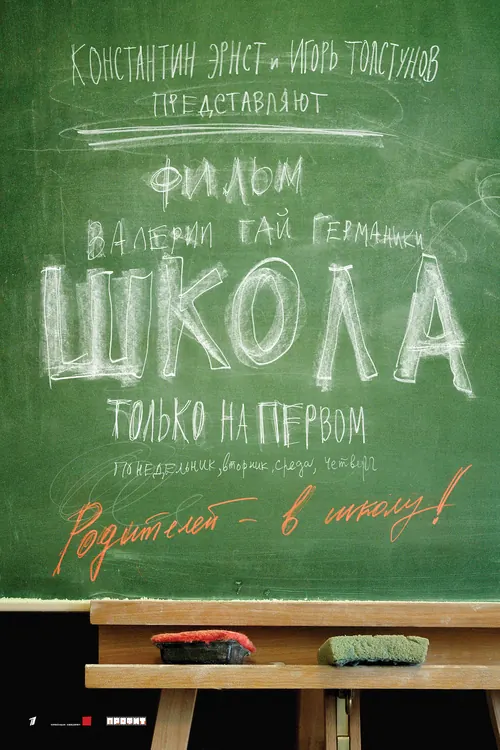 КОНСТАНТИН ЭРНСТ и ИГОРЬ ТОЛСТУНОВ
ПРЕДСТАВЛЯЮТ
ФИЛЬМ
ВАЛЕРИИ ГАЙ ГЕРМАНИКИ
ШКОЛА
ТОЛЬКО НА ПЕРВОМ
ПОНЕДЕЛЬНИК, вторник, среда, четверг
Родителей – в школу!
1
ПРОФИТ